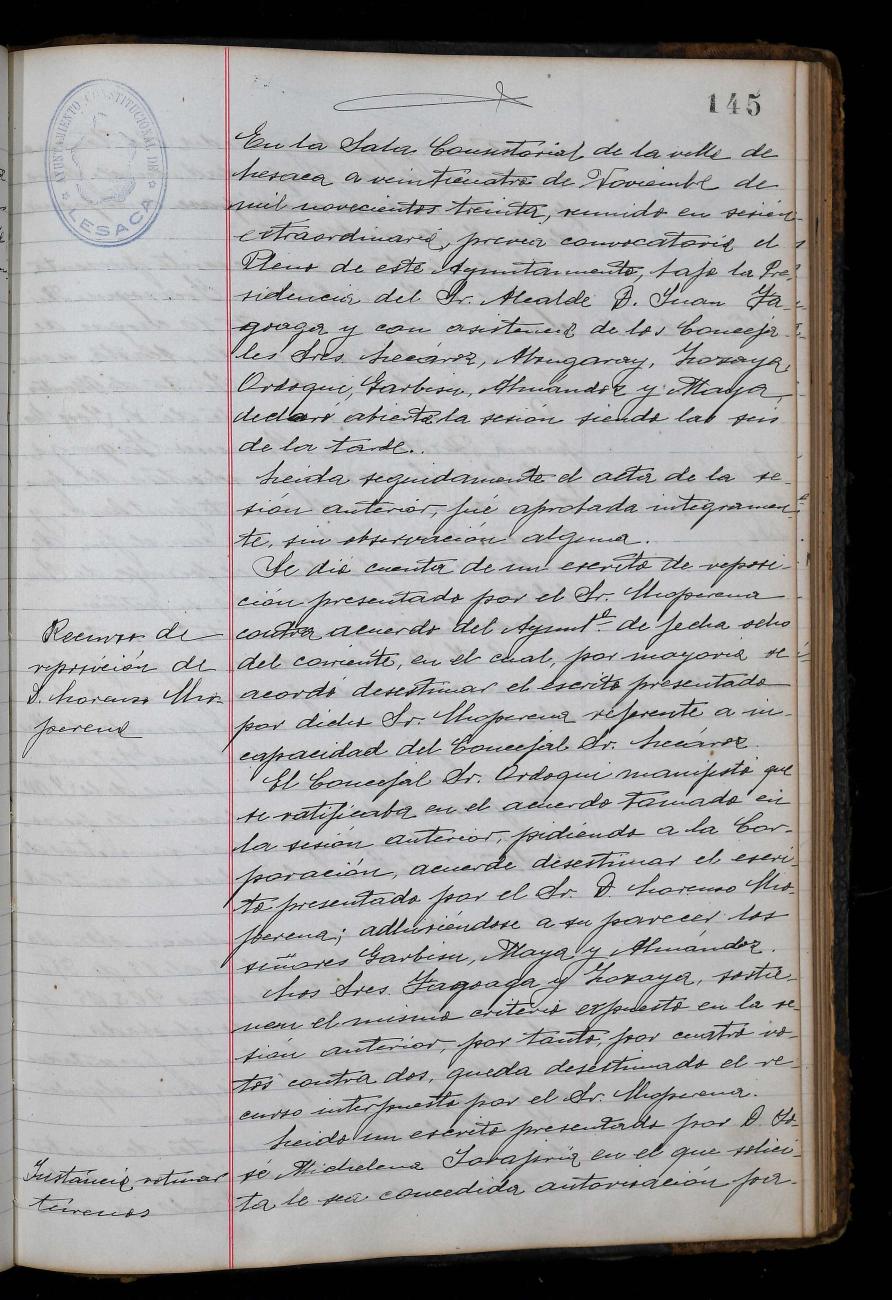 145
AYUNTAMIENTO CONSTITUCIONAL DE
LESACA
En la Sala Consistorial de la villa de
Lesaca a veinticuatro de Noviembre de
mil novecientos treinta, reunido en sesión
extraordinaria, previa convocatoria el
Pleno de este Ayuntamiento, bajo la Pre-
sidencia del Sr. Alcalde D. Juan Fa-
goaga y con asistencia de los Conceja-
les Sres. Lecároz, Zozaya,
Ordoqui, Garbisu, Almandoz y Maya,
declaro abierta la sesion siendo las seis
de la tarde..
Leida seguidamente el acta de la se-
sión anterior, fué aprobada integramen-
te, sin observación alguna.
Se dió cuenta de un escrito de reposi-
ción presentado por el Sr. Mioperena
contra acuerdo del Ayuntº. de fecha ocho
del corriente, en el cual, por mayoria se
acordó desestimar el escrito presentado
por dicho Sr. Mioperena referente a in-
capacidad del Concejal Sr. Lecároz.
Recurso de
reposición de
D. Lorenzo Mio-
perena
El Concejal Sr. Ordoqui manifestó que
se ratificaba en el acuerdo tomado en
la sesión anterior, pidiendo a la Cor-
poración, acuerde desestimar el escri-
to presentado por el Sr. D. Lorenzo Mio-
perena; adhiriéndose a su parecer los
señores Garbisu, Maya y Almándoz.
Los Sres. Fagoaga y Zozaya, sostie-
nen el mismo criterio expuesto en la se-
sión anterior, por tanto, por cuatro vo-
tos contra dos, queda desestimado el re-
curso interpuesto por el Sr. Mioperena.
Leido un escrito presentado por D. Jo-
sé Michelena en el que solici-
ta le sea concedida autorisación pa-
Instáncia roturar
terrenos